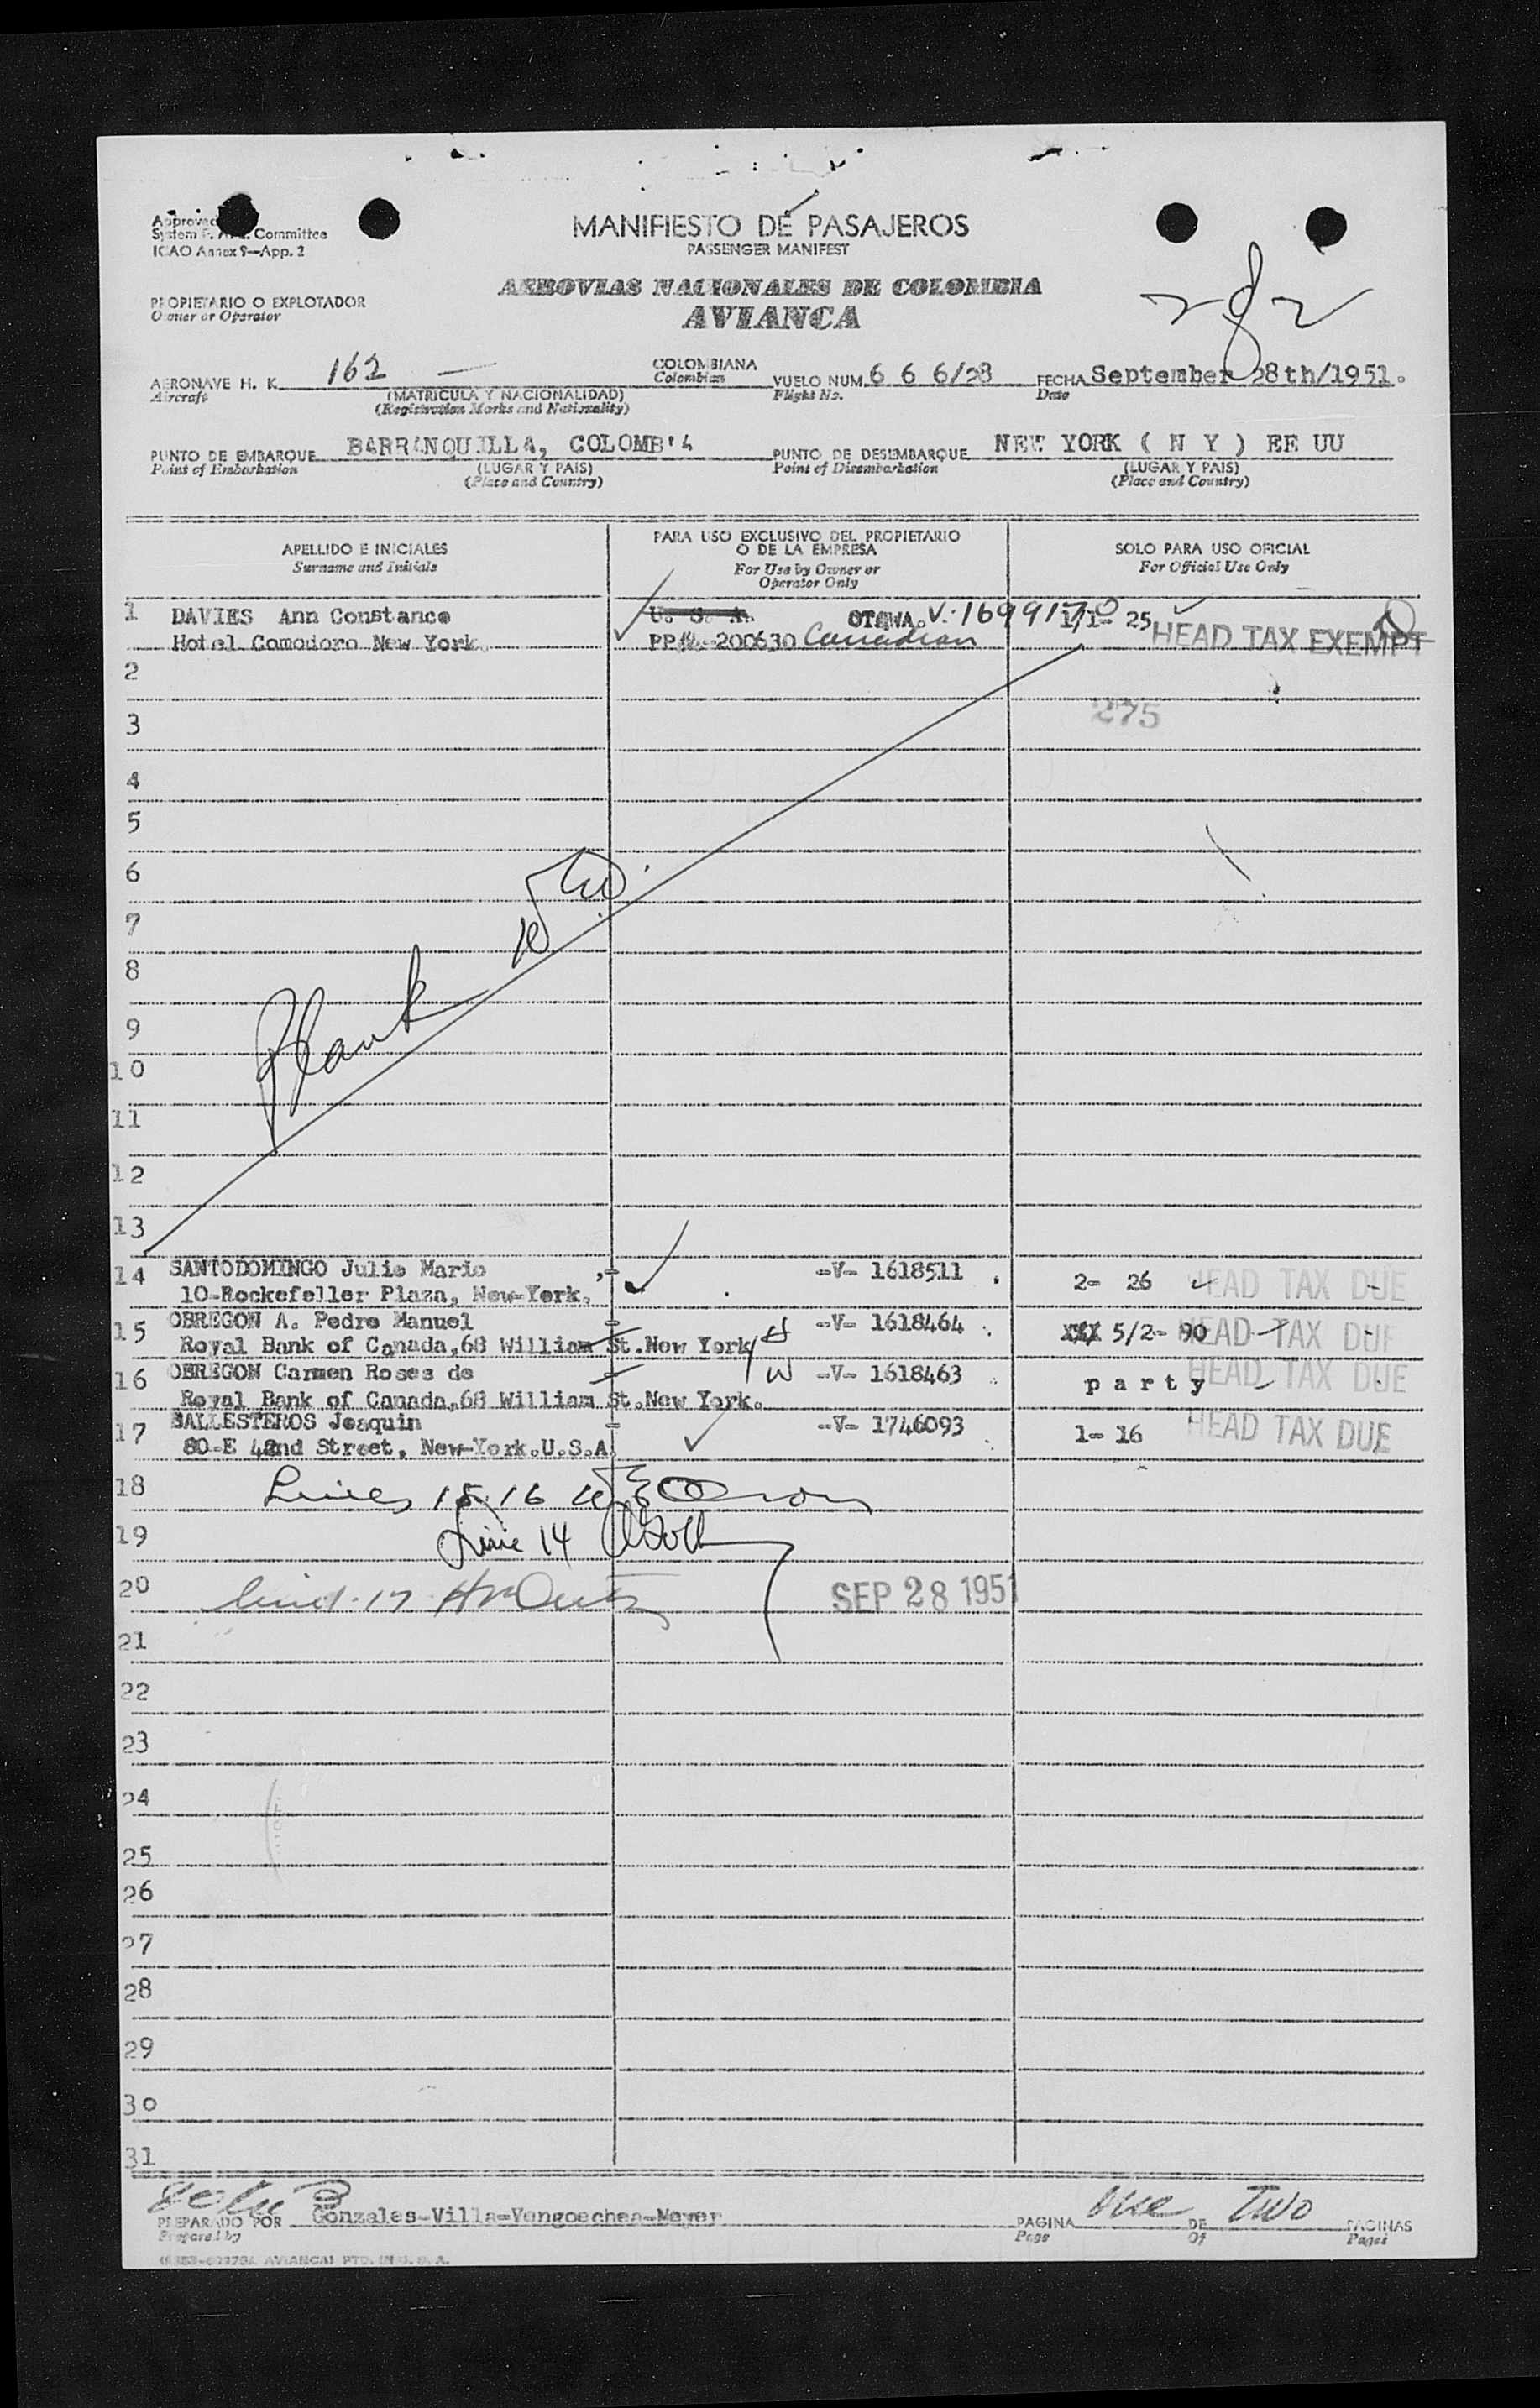 MANIFIESTO DE PASAJEROS
PASSENGER MANIFEST
Approved
System Committee
ICAO Annex 9—App. 2
AEROVIAS NACIONALES DE COLOMBIA
AVIANCA
PROPIETARIO O EXPLOTADOR
Owner or Operator
282
AERONAVE H. K. 162 — COLOMBIANA VUELO NUM. 6 6 6/28 FECHA September 28th/1951.
Aircraft (MATRICULA Y NACIONALIDAD) Colombian Flight No. Date
(Registration Marks and Nationality)
PUNTO DE EMBARQUE BARRANQUILLA, COLOMB'A PUNTO DE DESEMBARQUE NEW YORK ( N Y ) EE UU
Point of Embarkation (LUGAR Y PAIS) Point of Disembarkation (LUGAR Y PAIS)
(Place and Country) (Place and Country)
APELLIDO E INICIALES
Surname and Initials
PARA USO EXCLUSIVO DEL PROPIETARIO
O DE LA EMPRESA
For Use by Owner or
Operator Only
SOLO PARA USO OFICIAL
For Official Use Only
1 DAVIES Ann Constance U. S. A. OTAWA. V-1699170 1/1- 25
Hotel Comodoro New York. PP No. 200630 Canadian HEAD TAX EXEMPT
2
3 275
4
5
6
7
8
9
Blank
10
11
12
13
14 SANTODOMINGO Julio Mario -V- 1618511 2- 26 HEAD TAX DUE
10-Rockefeller Plaza, New-York.
15 OBREGON A. Pedro Manuel H -V- 1618464 XXX 5/2- 90 HEAD TAX DUE
Royal Bank of Canada,68 William St.New York
16 OBREGON Carmen Roses de W -V- 1618463 party HEAD TAX DUE
Royal Bank of Canada,68 William St.New York.
17 BALLESTEROS Joaquin -V- 1746093 1- 16 HEAD TAX DUE
80-E 42nd Street, New-York.U.S.A.
18 Lines 15.16
19 Line 14
20 Line 17 SEP 28 1951
21
22
23
24
25
26
27
28
29
30
31
PREPARADO POR Gonzales-Villa-Vengoechea-Meyer PAGINA One DE Two PAGINAS
Prepared by Page Of Pages
AVIANCA PTD. IN U. S. A.